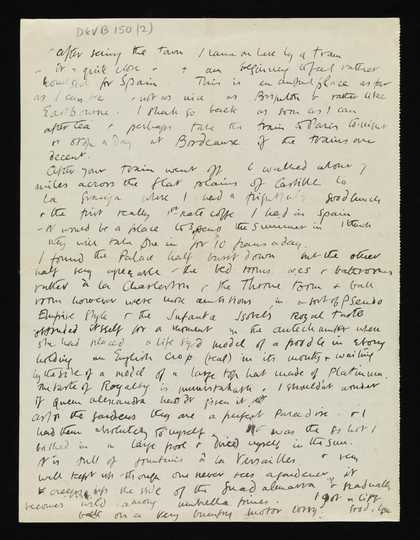 D&VB 150 (2)
After seeing the town I came on here by a tram
- It's quite close - & am beginning to feel rather
for Spain. This is an awful place as far
as I can see - not as nice as Brighton & rather like
Eastbourne. I shall go back as soon as I can
after tea & perhaps take the train to Paris tonight
or stop a day at Bordeaux if the trains are
decent.
After your train went off I walked about 7
miles across the flat plains of Castille to
La Granja where I had a good lunch
& the first really 1st rate coffee I had in Spain
- It would be a place to spend the summer in I think
they will take one in for 10 francs a day.
I found the Palace half burnt down but the other
half very agreeable - the bed rooms, w.c.s & bathrooms
rather à la Charleston & the Throne room & ball
room however were more ambitious in a sort of pseudo
Empire style & the Infanta Isobel's Royal taste
itself for a moment in the antechamber when
she had placed a life sized model of a poodle in ebony
holding an English crop (real) in its mouth & waiting
by the side of a model of a large top hat made of Platinum.
The taste of Royalty is unmistakable & I shouldn't wonder
if Queen Alexandra hadn't given it.
As for the gardens they are a perfect Paradise. & I
had them absolutely to myself. It was so hot I
bathed in a large pool & dried myself in the sun.
It is full of fountains à la Versailles & very
well kept up though one never sees a gardener, it
creeps up the side of the Guadalarama & gradually
becomes wild among umbrella pines. I got a lift
back on a very bumpy motor lorry.